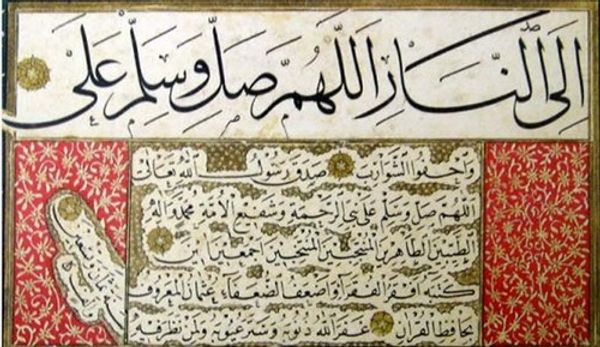 اِلَى النَّارِ اَللّٰهُمَّ صَلِّ وَسَلِّمْ عَلٰى
واحفوا الشوارب صدق رسول الله تعالى
اللهم صل وسلم على نبي الرحمة وشفيع الامة محمد وآله
الطيبين الطاهرين اجمعين
كتبه افقر الفقرا واضعف الضعفاء عثمان المعروف
بحافظ القران غفر الله ذنوبه وستر عيوبه ولمن نظر فيه